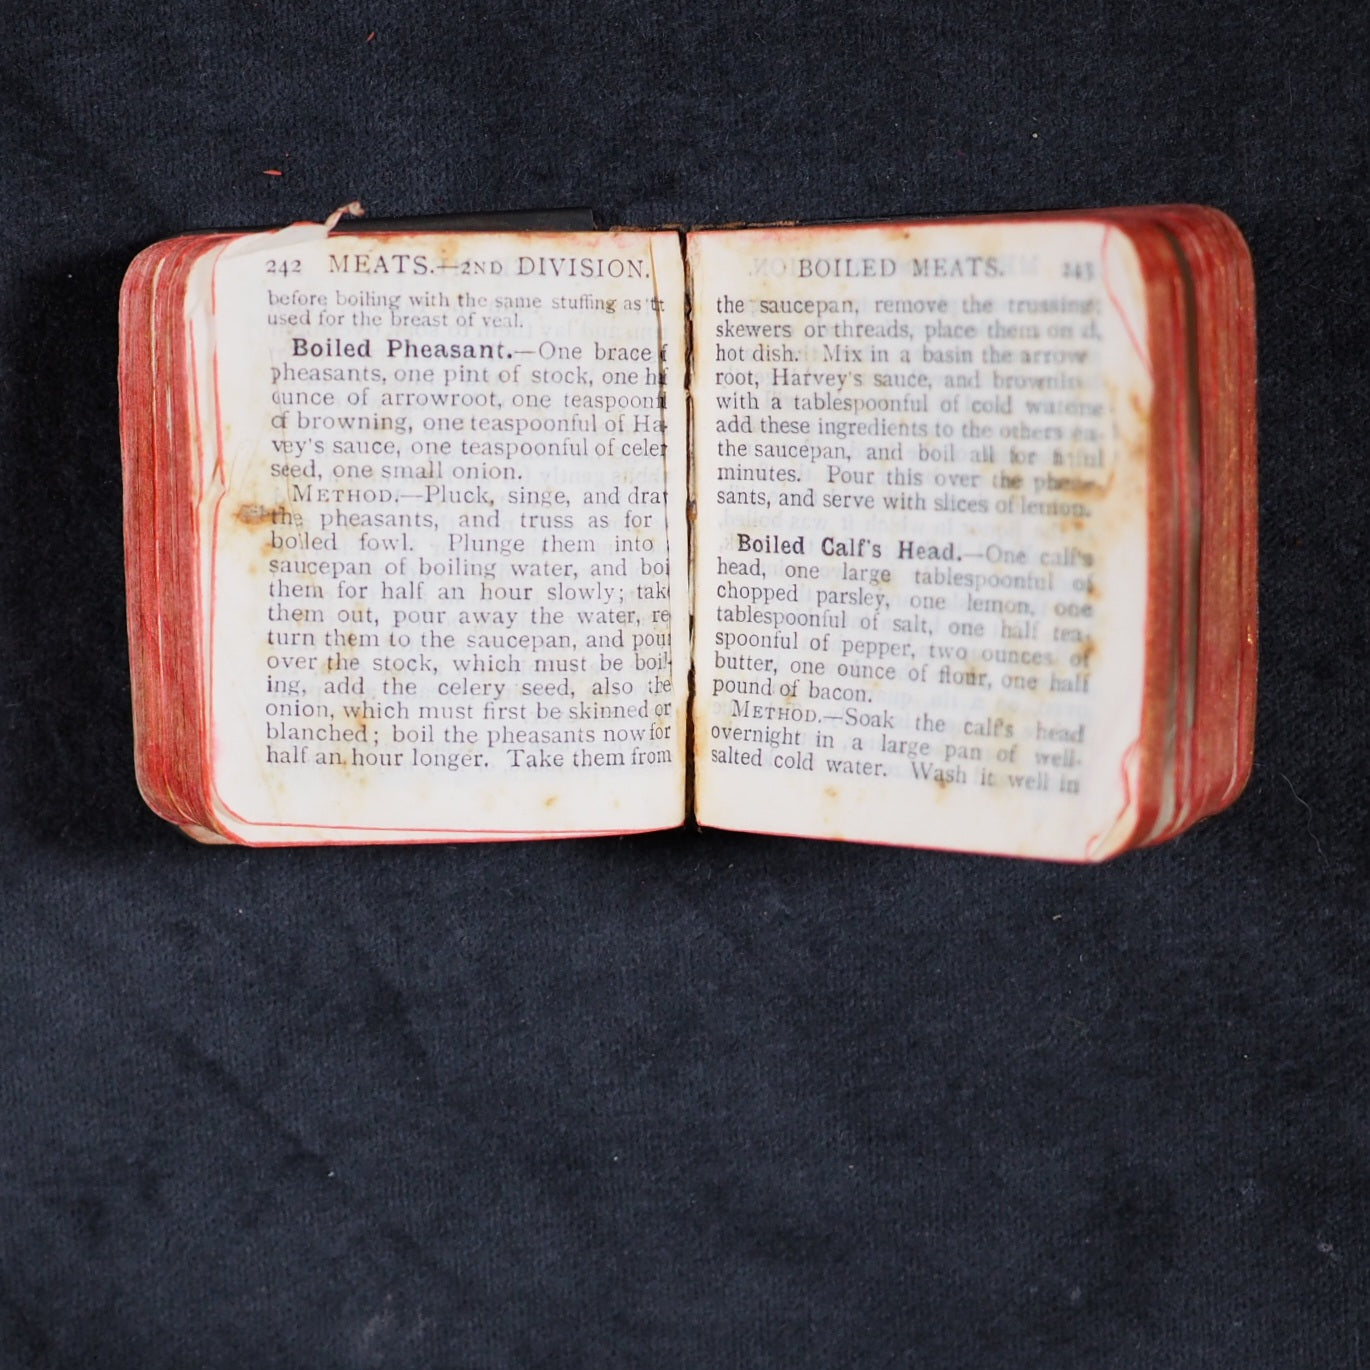 242 MEATS.—2ND DIVISION.
before boiling with the same stuffing as
used for the breast of veal.
Boiled Pheasant.—One brace
pheasants, one pint of stock, one
ounce of arrowroot, one
of browning, one teaspoonful of Har-
vey's sauce, one teaspoonful of celery
seed, one small onion.
METHOD.—Pluck, singe, and draw
the pheasants, and truss as for
boiled fowl. Plunge them into
saucepan of boiling water, and boil
them for half an hour slowly; take
them out, pour away the water, re
turn them to the saucepan, and pour
over the stock, which must be boil-
ing, add the celery seed, also the
onion, which must first be skinned or
blanched; boil the pheasants now for
half an hour longer. Take them from
BOILED MEATS. 243
the saucepan, remove the trussing
skewers or threads, place them on
hot dish. Mix in a basin the arrow
root, Harvey's sauce, and browning
with a tablespoonful of cold
add these ingredients to the others
the saucepan, and boil all for
minutes. Pour this over the phea-
sants, and serve with slices of lemon.
Boiled Calf's Head.—One calf's
head, one large tablespoonful of
chopped parsley, one lemon, one
tablespoonful of salt, one half tea-
spoonful of pepper, two ounces of
butter, one ounce of flour, one half
pound of bacon.
METHOD.—Soak the calf's head
overnight in a large pan of well-
salted cold water. Wash it well in